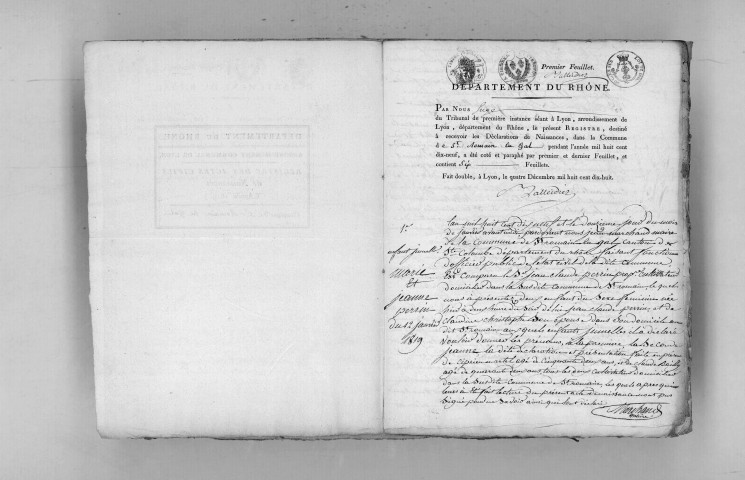 Premier Feuillet.
DÉPARTEMENT DU RHÔNE
PAR NOUS Juge
du Tribunal de première instance séant à Lyon, arrondissement de
Lyon, département du Rhône, le présent REGISTRE, destiné
à recevoir les Déclarations de Naissances, dans la Commune
de St Romain en Gal pendant l'année mil huit cent
dix-neuf, a été coté et paraphé par premier et dernier Feuillet, et
contient Six Feuillets.
Fait double, à Lyon, le quatre Décembre mil huit cent dix-huit.
1er
enfant jumelles
Marie
et
jeanne
perrin
du 12 janvier
1819
L'an mil huit cent dix neuf et le douzieme jour du mois
de janvier pardevant nous jean marchand maire
de la commune de St romain en gal canton de
Ste Colombe departement du rhône faisant fonctions
d'officier public de l'état civil de la dite commune
est Comparu le Sr jean claude perrin
domicilié dans la susdite commune de St romain, lequel
nous a présenté deux enfant du sexe feminin née
de lui jean claude perrin, et de
claudine christophe son epouse dans son domicile au
dit St romain aux quels enfants jumelles il a declaré
vouloir donner les prenoms, à la premiere, la seconde
jeanne la dite declaration et présentation faite en présence
de agé de cinquante deux ans, et de claude
agé de quarante deux ans tous les deux cultivateurs domiciliés
dans la susdite Commune de St romain, les quels après que
lecture du present acte de naissance n'ont pas
signé pour ne savoir
Marchand
maire